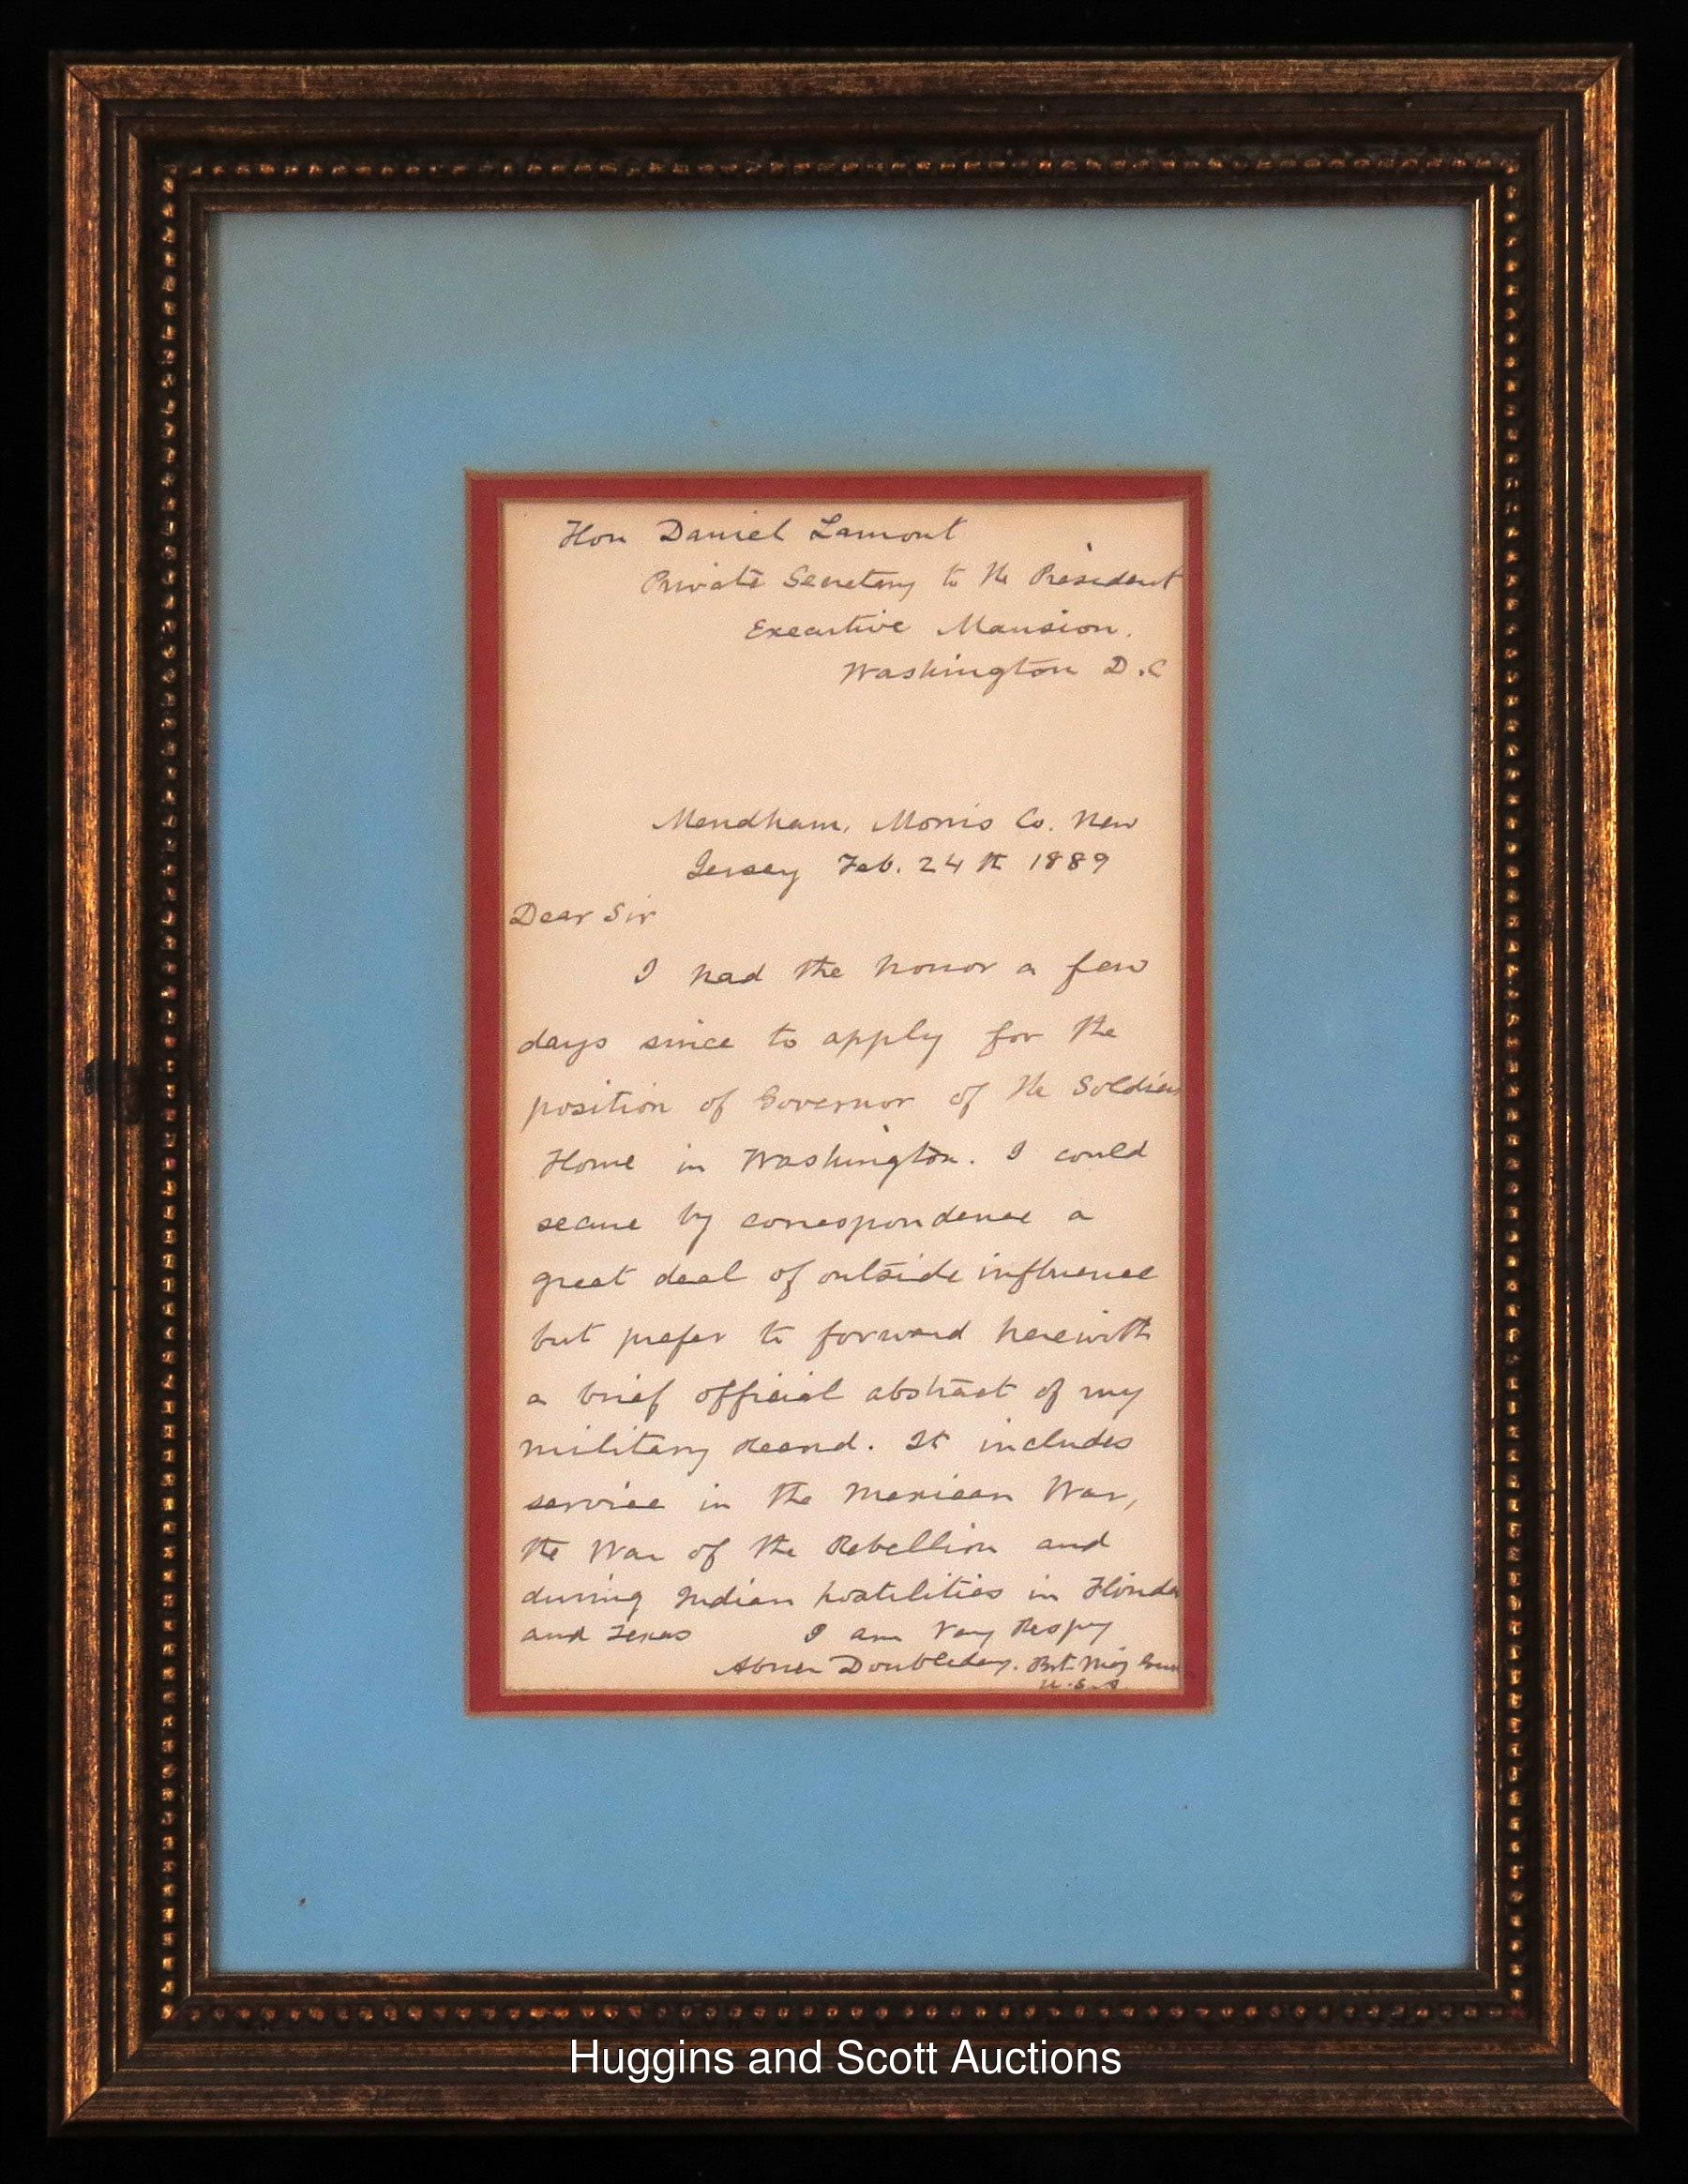 Hon Daniel Lamont
Private Secretary to the President
Executive Mansion.
Washington D.C
Mendham, Morris Co. New
Jersey Feb. 24th 1889
Dear Sir
I had the honor a few
days since to apply for the
position of Governor of the Soldiers
Home in Washington. I could
secure by correspondence a
great deal of outside influence
but prefer to forward herewith
a brief official abstract of my
military record. It includes
service in the Mexican War,
the War of the Rebellion and
during Indian hostilities in Florida
and Texas I am Very Respy
Abner Doubleday. Bvt Maj Genl
U.S.A.
Huggins and Scott Auctions